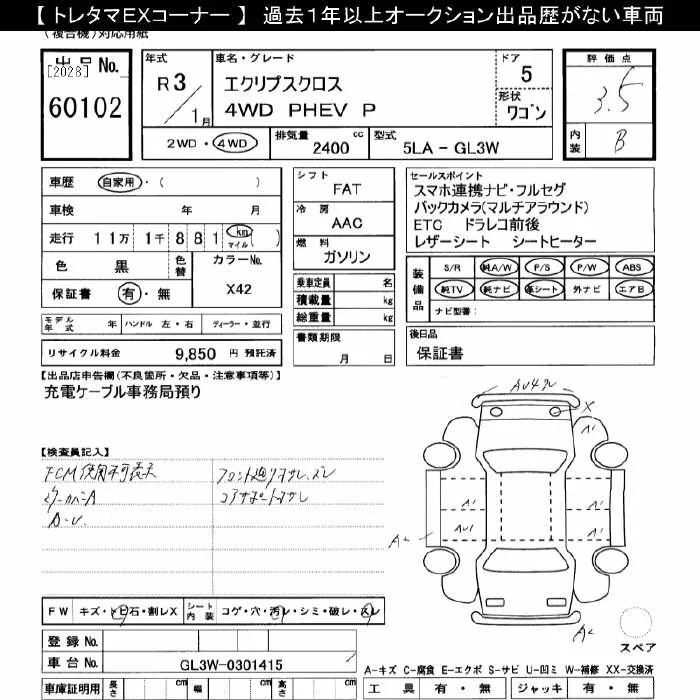 【 トレタマEXコーナー 】 過去１年以上オークション出品歴がない車両
(複合機)対応用紙
出品 No.
[2028]
60102
年式
R3/1月
車名・グレード
エクリプスクロス
4WD PHEV P
ドア
5
形状
ワゴン
2WD・4WD
排気量 2400 cc
型式 5LA - GL3W
評価点
3.5
内装 B
車歴 自家用・( )
車検 年 月
走行 11万 1千 881 km マイル ( )
色 黒 色替
カラーNo.
X42
保証書 有・無
シフト
FAT
冷房
AAC
燃料
ガソリン
乗車定員 名
積載量 kg
総重量 kg
セールスポイント
スマホ連携ナビ・フルセグ
バックカメラ(マルチアラウンド)
ETC ドラレコ前後
レザーシート シートヒーター
装備品
S/R 純A/W P/S P/W ABS
純TV 純ナビ 革シート 外ナビ エアB
ナビ型番:
モデル年式 年 ハンドル 左・右 ディーラー・並行
リサイクル料金 9,850 円 預託済
書類期限
月 日
後日品
保証書
【出品店申告欄(不良箇所・欠品・注意事項等)】
充電ケーブル事務局預り
【検査員記入】
FCM使用不可表示
ミラーカバーA
A-U.
コアサポートオサレ
A X
A1
A1
A1
AU1
A1
A2
A2
FW キズ・トビ石・割レX
シート内装 コゲ・穴・汚レ・シミ・破レ・スレ
登録 No.
車台 No. GL3W-0301415
車庫証明用 長さ cm 幅 cm 高さ cm
スペア
A-キズ C-腐食 E-エクボ S-サビ U-凹ミ W-補修 XX-交換済
工具 有・無 ジャッキ 有・無